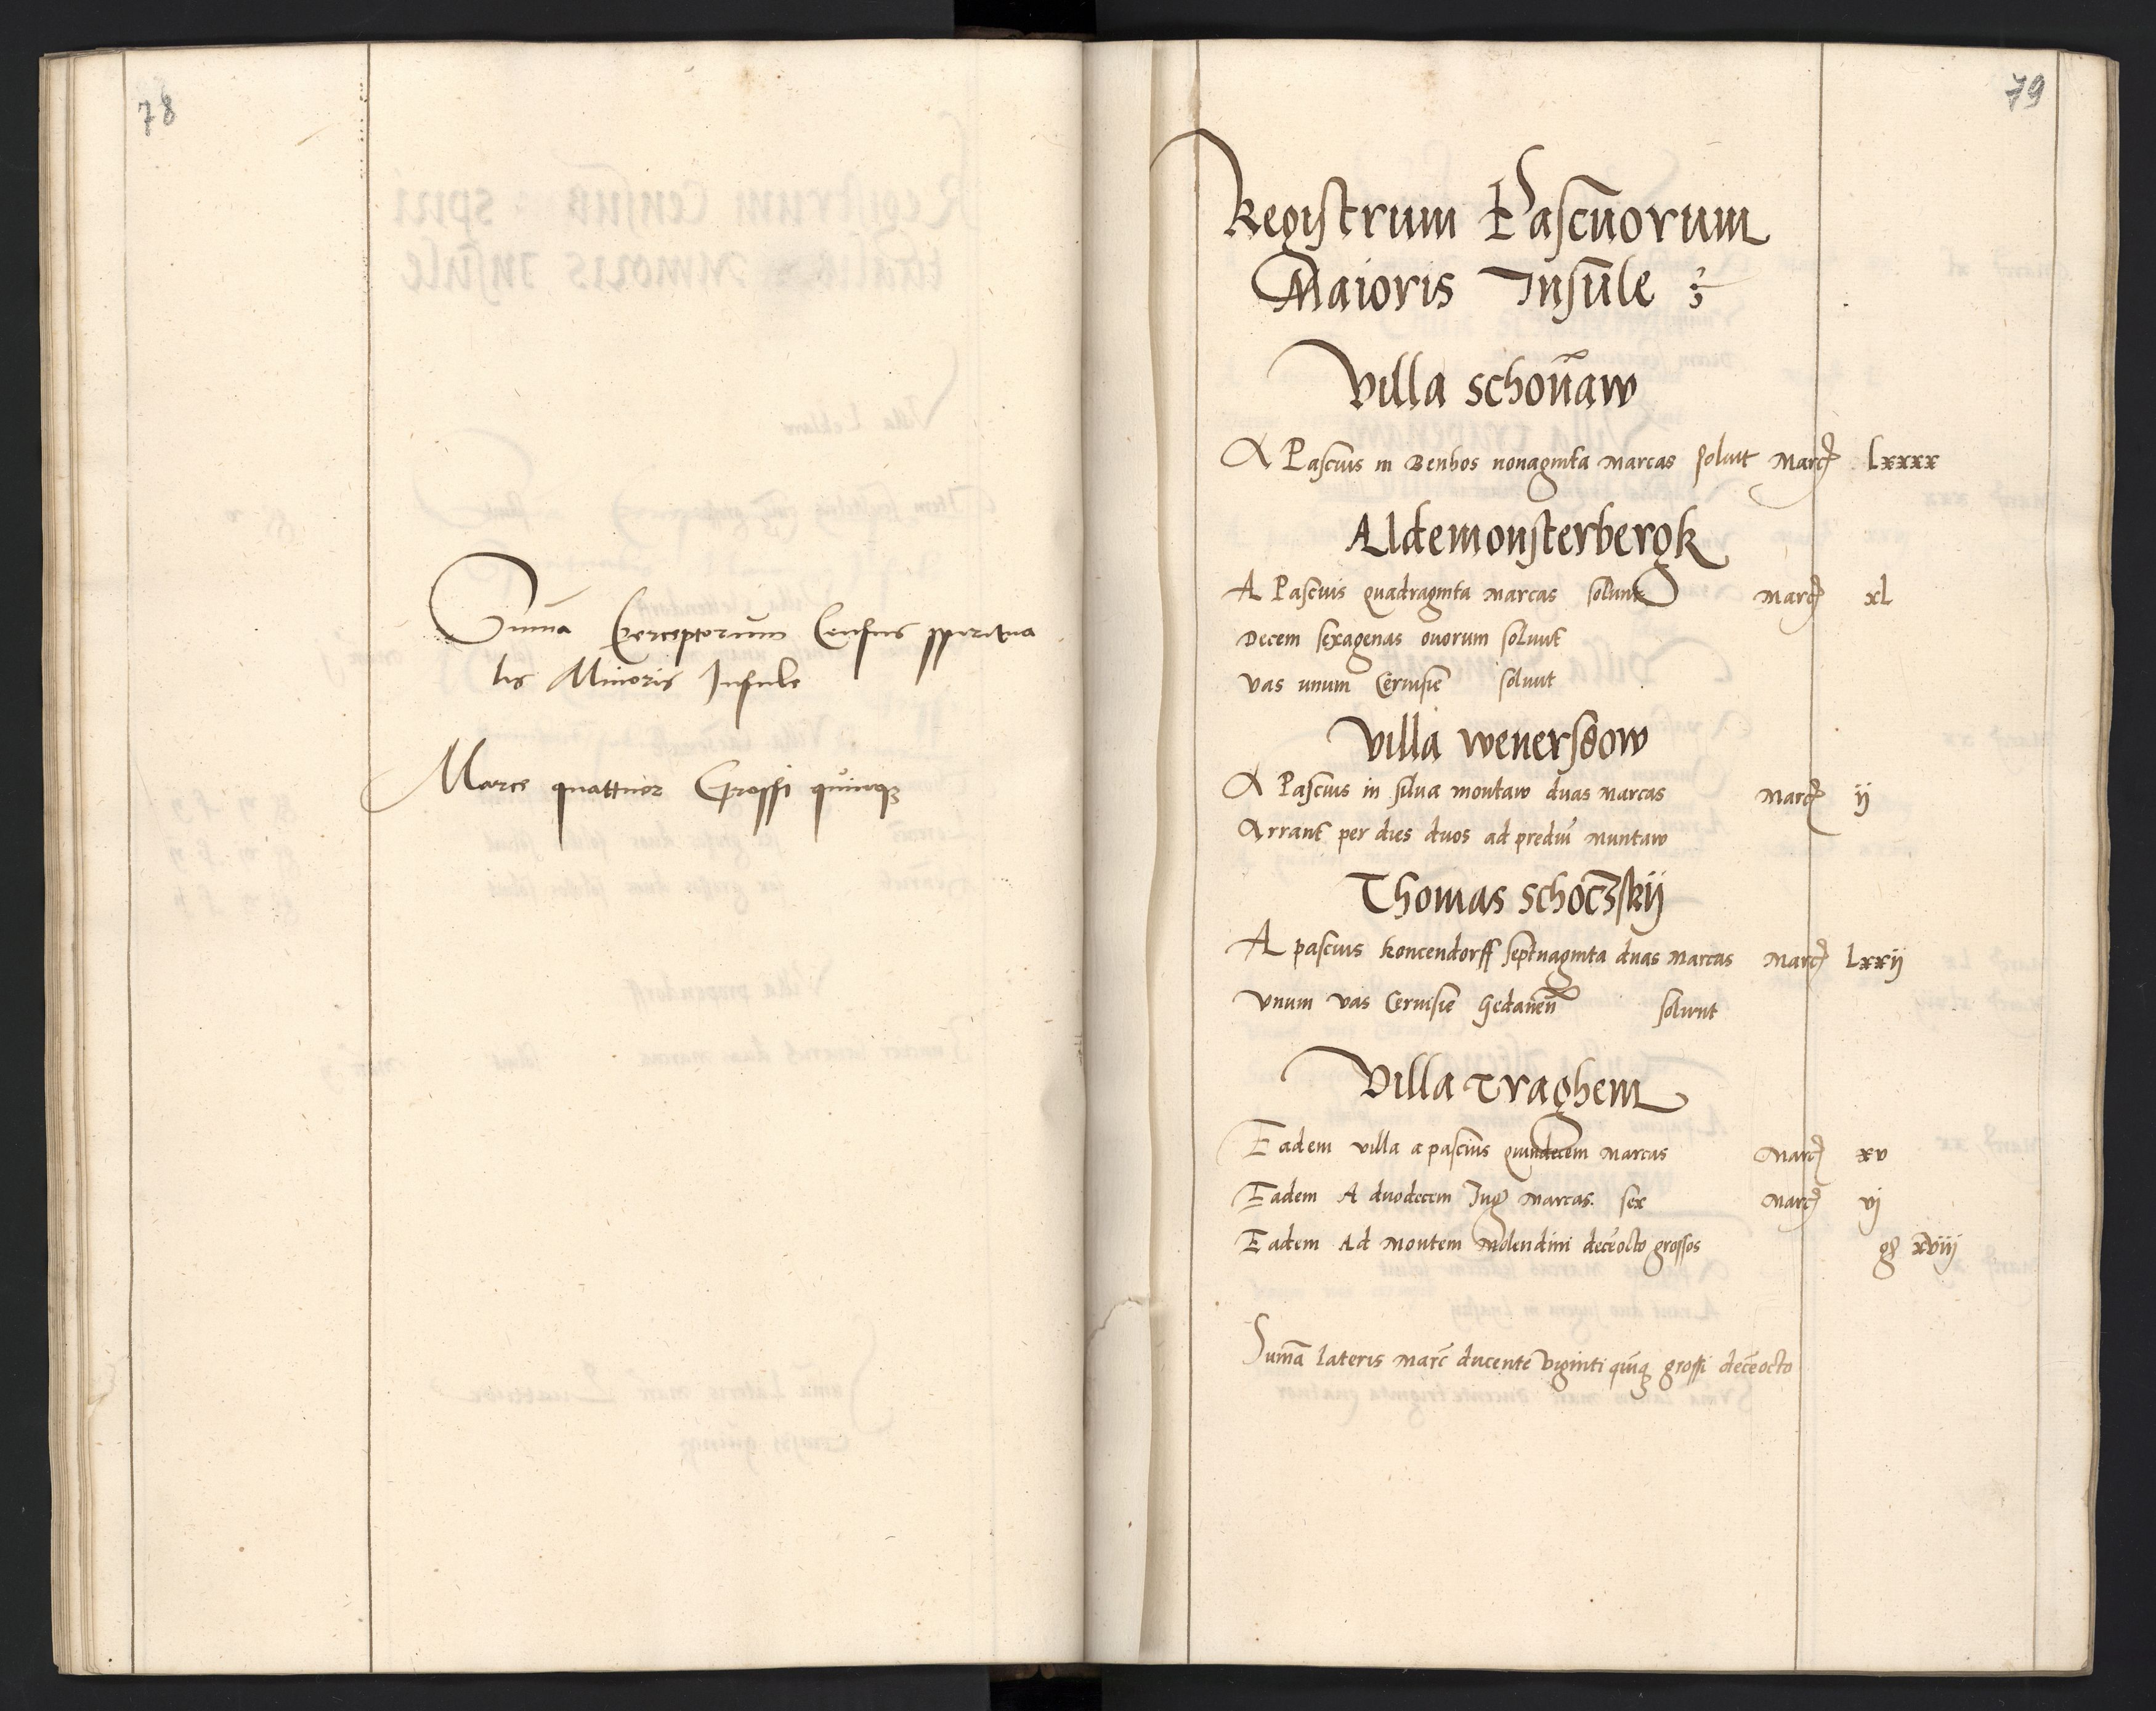 78
Suma Perceptorum Census spiritua
lis Minoris Insule
Marce quattuor Grossi quinqȝ
79
Registrum Pascuorum
Maioris Insule
Villa schonaw
A Pascuis in Benhos nonaginta marcas soluit Marc Lxxxx
Aldemonsterbergk
A Pascuis quadraginta marcas soluunt Marc xL
Decem sexagenas ouorum soluut
Vas unum Ceruisie soluut
Villa wenersdow
A Pascuis in silua montaw duas marcas Marc ij
Arrant per dies duos ad prediu Muntaw
Thomas schoczskij
A pascuis koncendorff septuaginta duas Marcas Marc Lxxij
Vnum vas Ceruisie Gedanen soluunt
Villa Traghem
Eadem villa a pascuis quindecem Marcas Marc xv
Eadem A duodecem Jug Marcas. sex Marc vj
Eadem Ad Montem Molendini deceocto grossos gs xviij
Suma lateris marc ducente viginti quiqȝ grossi deceocto